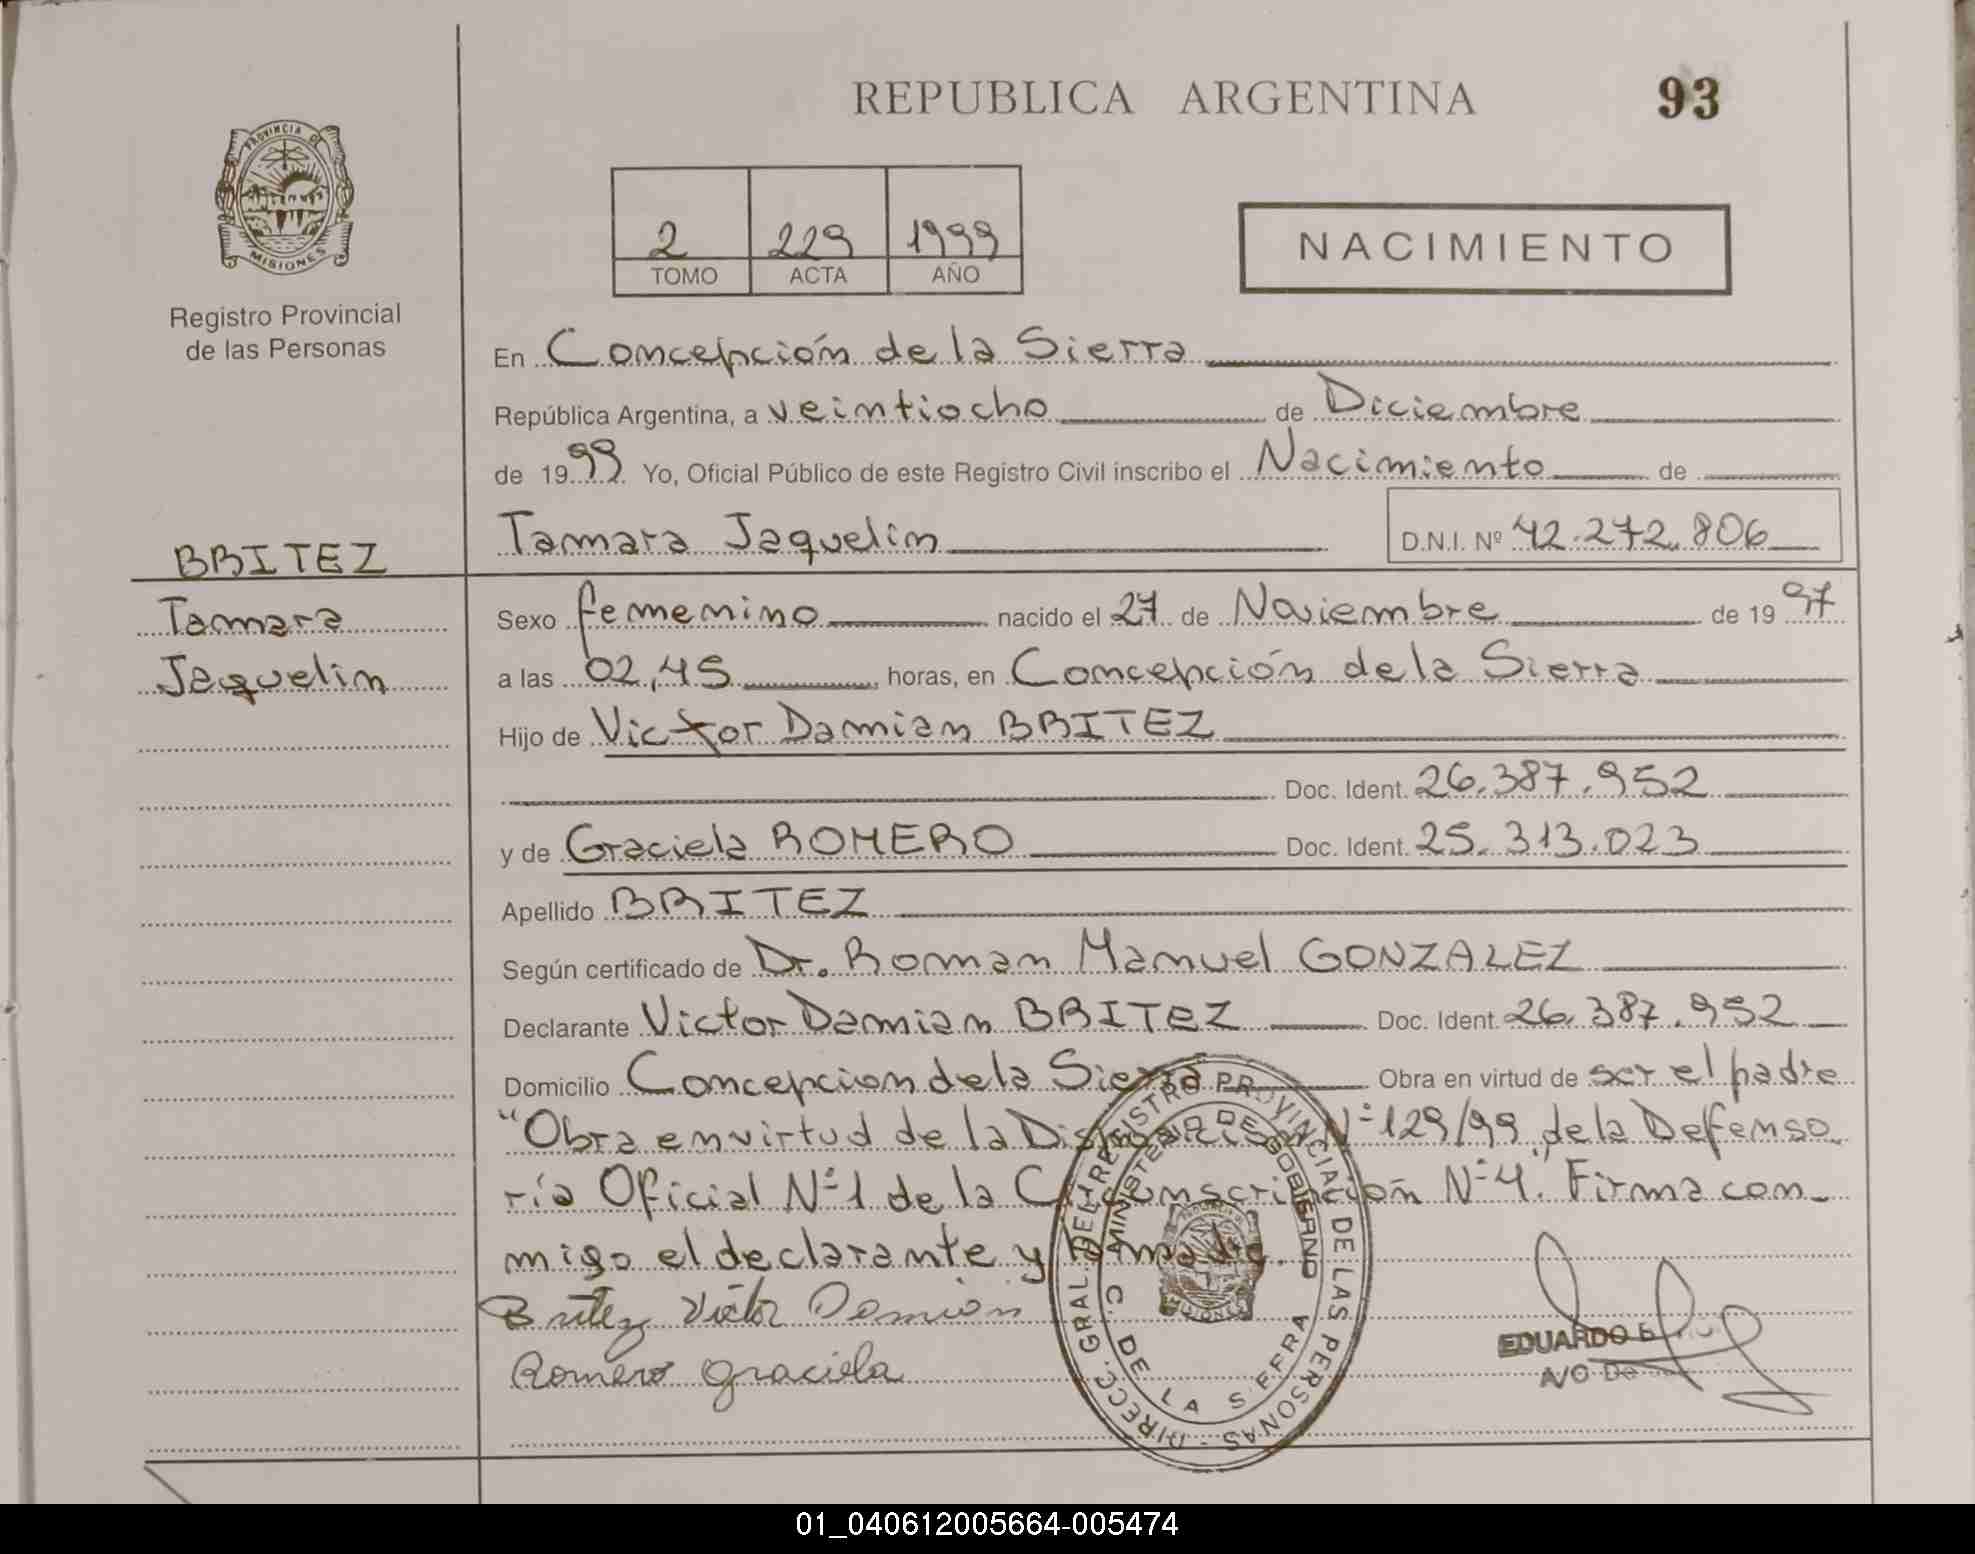 REPUBLICA ARGENTINA
93
PROVINCIA DE
MISIONES
Registro Provincial
de las Personas
2 229 1999
TOMO ACTA AÑO
NACIMIENTO
En Concepción de la Sierra
República Argentina, a veintiocho de Diciembre
de 1999 Yo, Oficial Público de este Registro Civil inscribo el Nacimiento de
Tamara Jaquelin D.N.I. Nº 42.272.806
BRITEZ
Tamara
Jaquelin
Sexo femenino nacido el 27 de Noviembre de 1997
a las 02,45 horas, en Concepción de la Sierra
Hijo de Victor Damian BRITEZ
Doc. Ident. 26.387.952
y de Graciela ROMERO Doc. Ident. 25.313.023
Apellido BRITEZ
Según certificado de Dr. Roman Manuel GONZALEZ
Declarante Victor Damian BRITEZ Doc. Ident. 26.387.952
Domicilio Concepcion de la Sierra Obra en virtud de ser el padre
"Obra en virtud de la Disposición Nº 129/99 de la Defenso
ría Oficial Nº 1 de la Circunscripción Nº 4". Firma con-
migo el declarante y la madre.
Britez Victor Damian
Romero Graciela
DIRECC. GRAL. DEL REGISTRO PROVINCIAL DE LAS PERSONAS -
MINISTERIO DE GOBIERNO
C. DE LA SIERRA
MISIONES
EDUARDO
A/O
01_040612005664-005474